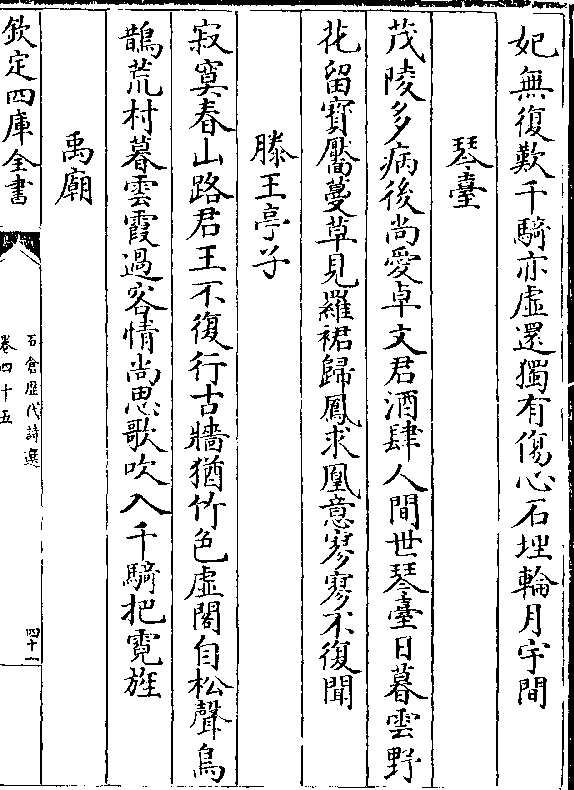 妃無復歎千騎亦虛還獨有傷心石埋輪月宇間
琴臺
茂陵多病後尚愛卓文君酒肆人間世琴臺日暮雲野
花留寶靨蔓草見羅裙歸鳳求凰意寥寥不復聞
滕王亭子
寂寞春山路君王不復行古牆猶竹色虛閣自松聲鳥
鵲荒村暮雲霞過客情尚思歌吹入千騎把霓旌
禹廟
欽定四庫全書
石倉歷代詩選
卷四十五
四十一